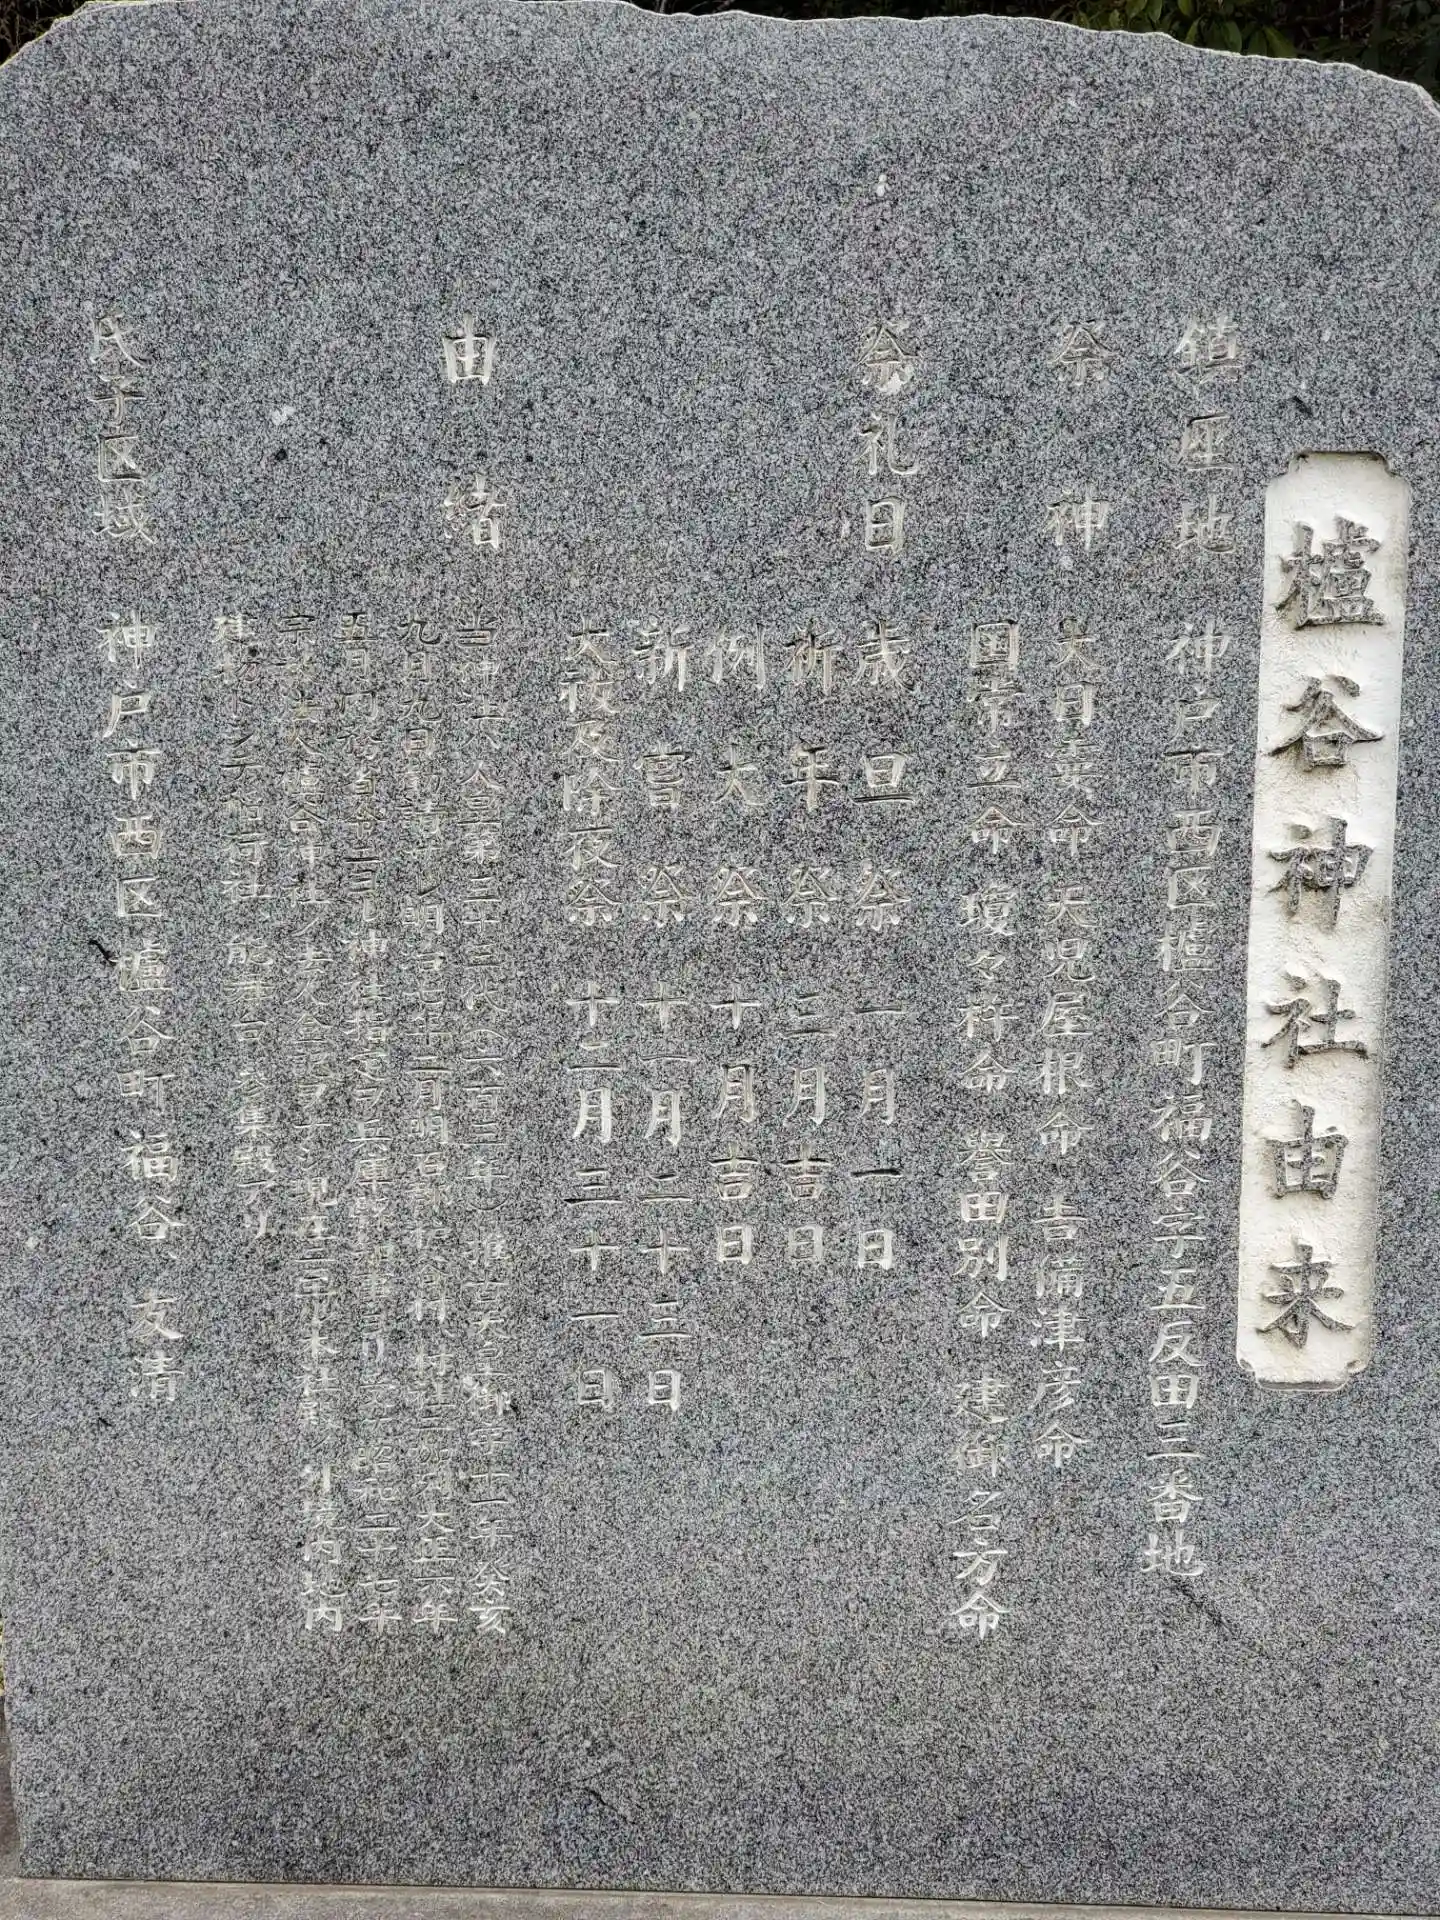 櫨谷神社由来
鎮座地 神戸市西区櫨谷町福谷字五反田三番地
祭神 大日孁命 天児屋根命 吉備津彦命
国常立命 瓊々杵命 誉田別命 建御名方命
祭礼日 歳旦祭 一月一日
祈年祭 三月吉日
例大祭 十月吉日
新嘗祭 十一月二十三日
大祓及除夜祭 十二月三十一日
由緒 当神社ハ人皇第三十三代(六百三年)推古天皇御宇十一年癸亥
九月九日勧請サレ明治七年二月明石郡 村村社ニ加列大正六年
五月内務省令ニヨル神社指定ヲ兵庫県知事ヨリ受ケ昭和二十七年
宗教法人櫨谷神社ノ法人登記ヲナシ現在ニ至ル本社殿ノ外境内地内
建物トシテ稲荷社、能舞台、参集殿アリ
氏子区域 神戸市西区櫨谷町福谷、友清